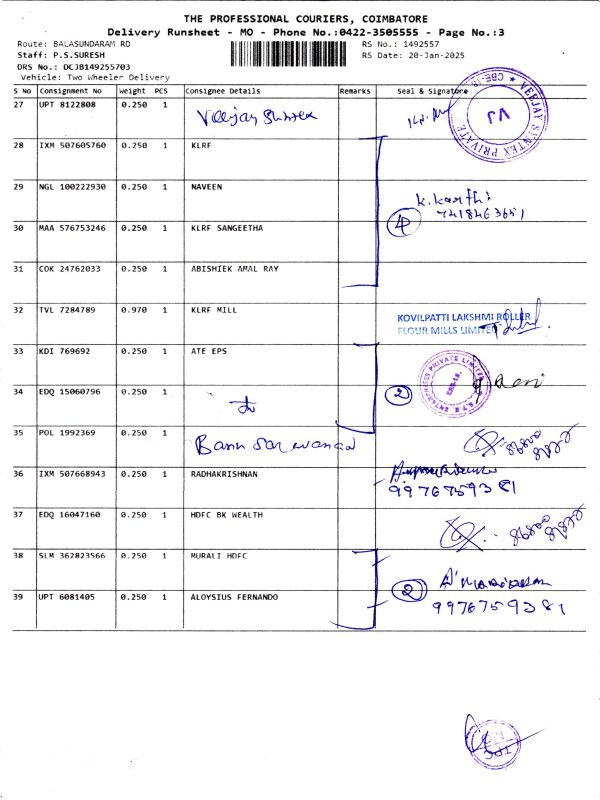 THE PROFESSIONAL COURIERS, COIMBATORE
Delivery Runsheet - MO - Phone No.:0422-3505555 - Page No.:3
Route: BALASUNDARAM RD
RS No.: 1492557
Staff: P.S.SURESH
RS Date: 20-Jan-2025
DRS No.: DCJB149255703
Vehicle: Two Wheeler Delivery
S No Consignment No Weight PCS Consignee Details Remarks Seal & Signature
27 UPT 8122808 0.250 1 Veejay Suntex
VEEJAY SUNTEX PRIVATE
CBE-18
VJ
28 IXM 507605760 0.250 1 KLRF
29 NGL 100222930 0.250 1 NAVEEN
K. Karthi
7418463651
4
30 MAA 576753246 0.250 1 KLRF SANGEETHA
31 COK 24762033 0.250 1 ABISHIEK AMAL RAY
32 TVL 7284789 0.970 1 KLRF MILL
KOVILPATTI LAKSHMI ROLLER
FLOUR MILLS LIMITED
33 KDI 769692 0.250 1 ATE EPS
A.T.E ENTERPRISES PRIVATE LIMITED
CBE-18.
34 EDQ 15060796 0.250 1
2
35 POL 1992369 0.250 1
36 IXM 507668943 0.250 1 RADHAKRISHNAN
9976759381
37 EDQ 16047160 0.250 1 HDFC BK WEALTH
38 SLM 362823566 0.250 1 MURALI HDFC
2
39 UPT 6081405 0.250 1 ALOYSIUS FERNANDO
9976759381
TPC